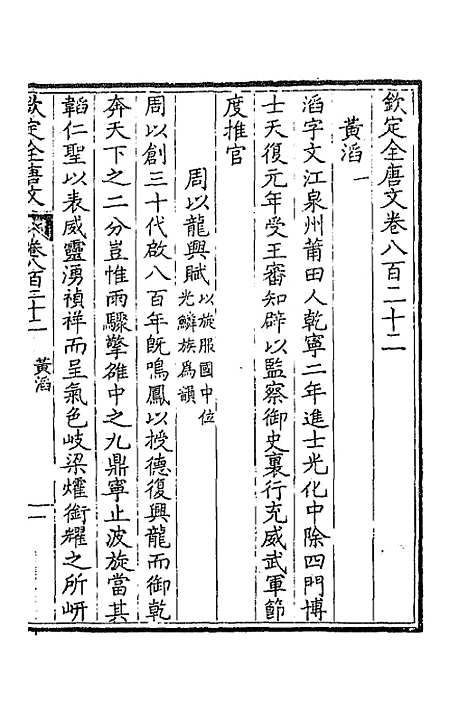 欽定全唐文卷八百二十二
黃滔一
滔字文江泉州莆田人乾寧二年進士光化中除四門博
士天復元年受王審知辟以監察御史裏行充威武軍節
度推官
周以龍興賦以旋服國中位
光鱗族爲韻
周以創三十代啟八百年旣鳴鳳以授德復興龍而御乾
奔天下之二分豈惟雨驟擎雒中之九鼎寧止波旋當其
韜仁聖以表威靈湧禎祥而呈氣色岐梁燿銜耀之所岍
欽定全唐文 卷八百二十二 黃滔 一